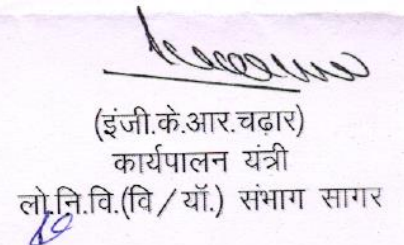 (इंजी.के.आर.चढ़ार)
कार्यपालन यंत्री
लो.नि.वि.(वि/यॉ.) संभाग सागर